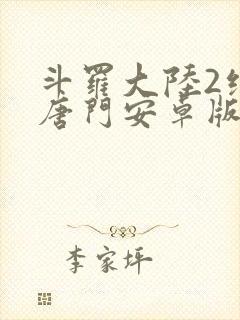 斗羅大陸2絕
唐門安卓版
李家坪